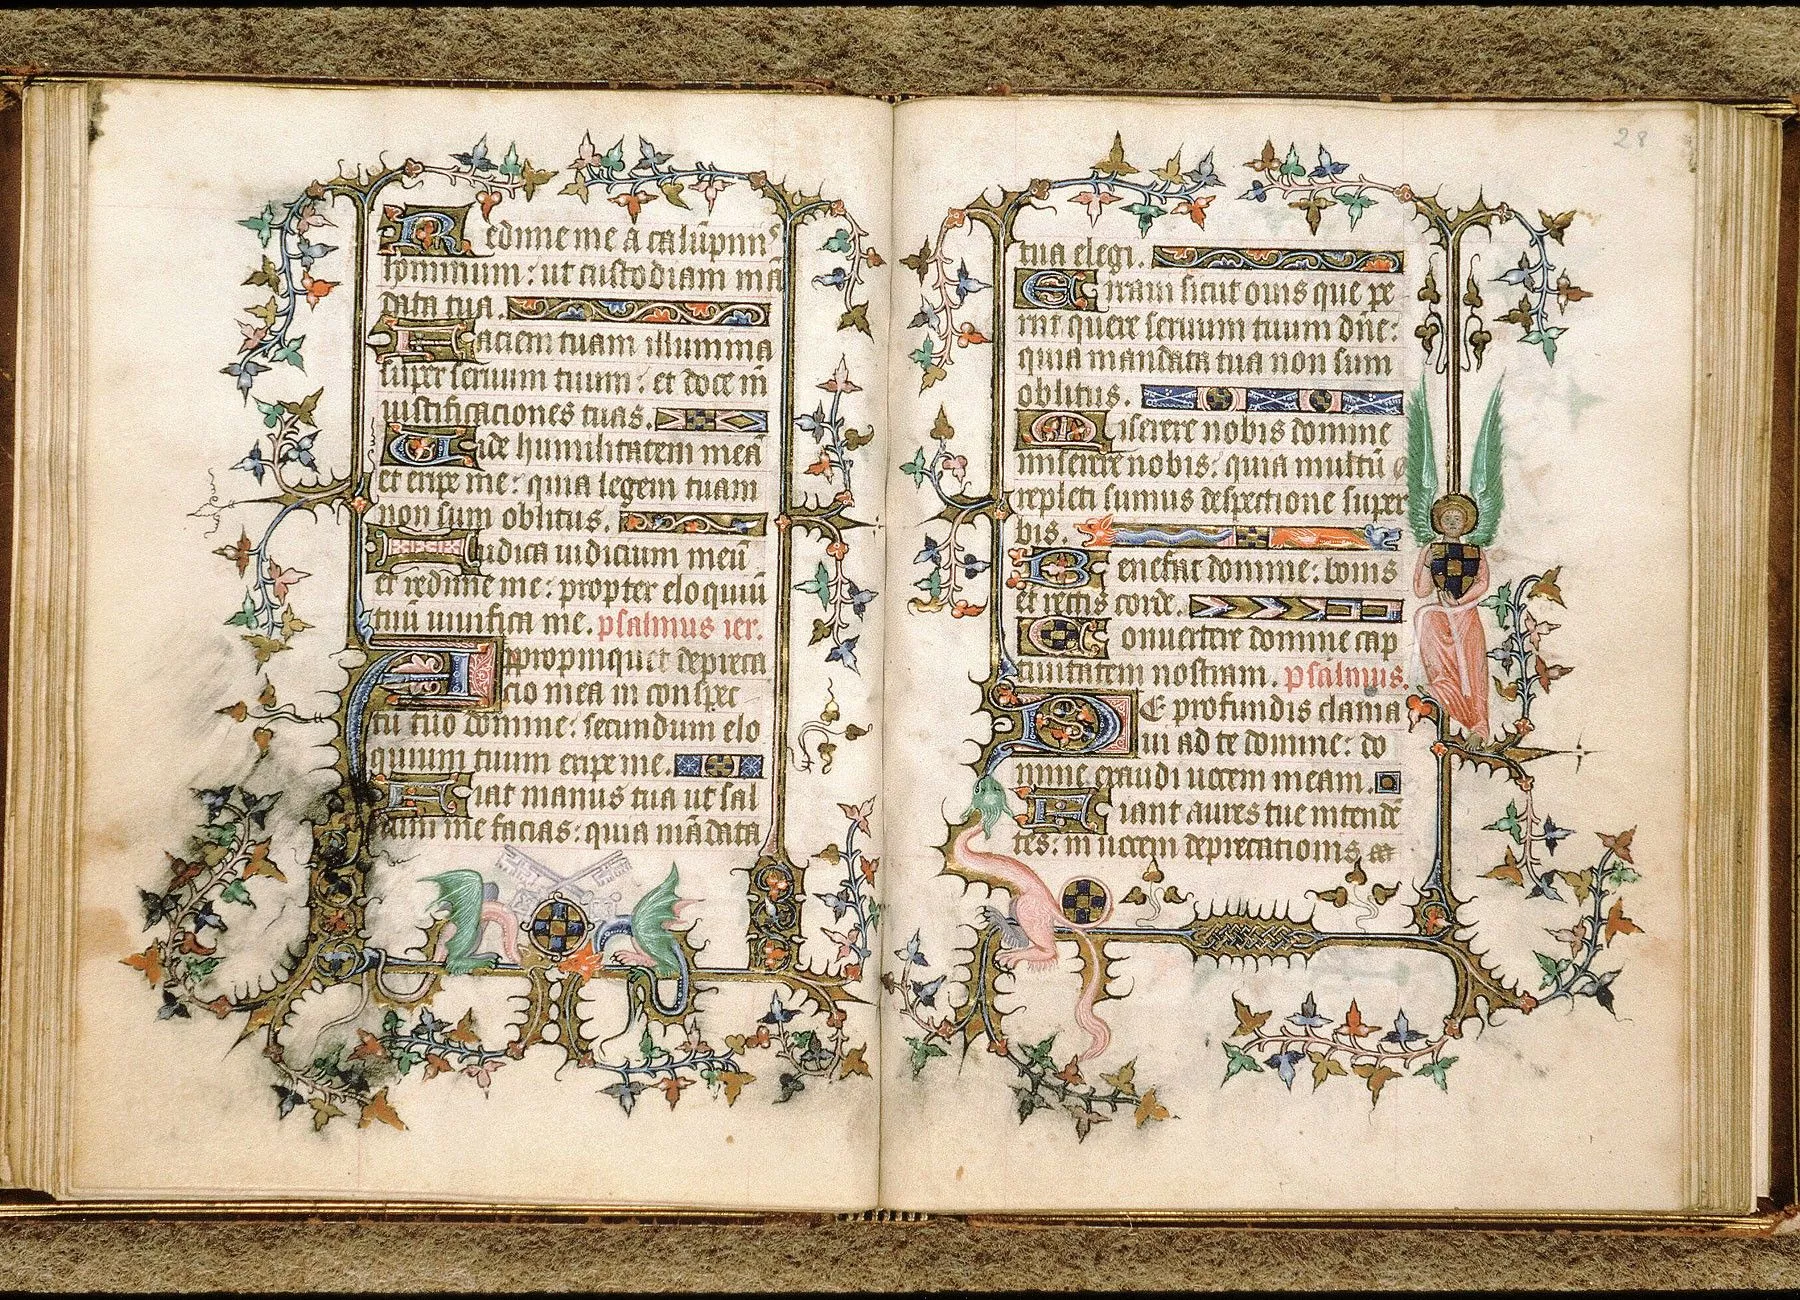 Redime me a calūpnijs
hominum: ut custodiam mā
data tua.
Faciem tuam illumina
super seruum tuum: et doce m̄
iustificaciones tuas.
Uide humilitatem meā
et eripe me: quia legem tuam
non sum oblitus.
Iudica iudicium meū
et redime me: propter eloquiū
tuū uiuifica me. psalmus ier.
Appropinquet depreca
cio mea in conspec
tu tuo domine: secundum elo
quium tuum eripe me.
Fiat manus tua ut sal
uum me facias: quia mādata
28
tua elegi.
Erraui sicut ouis que pe
rijt quere seruum tuum dñe:
quia mandata tua non sum
oblitus.
Miserere nobis domine
miserere nobis: quia multū
repleti sumus despectione super
bis.
Benefac domine: bonis
et rectis corde.
Conuertere domine cap
tiuitatem nostram. psalmus.
DE profundis clama
ui ad te domine: do
mine exaudi uocem meam.
Fiant aures tue intendē
tes: in uocem deprecationis